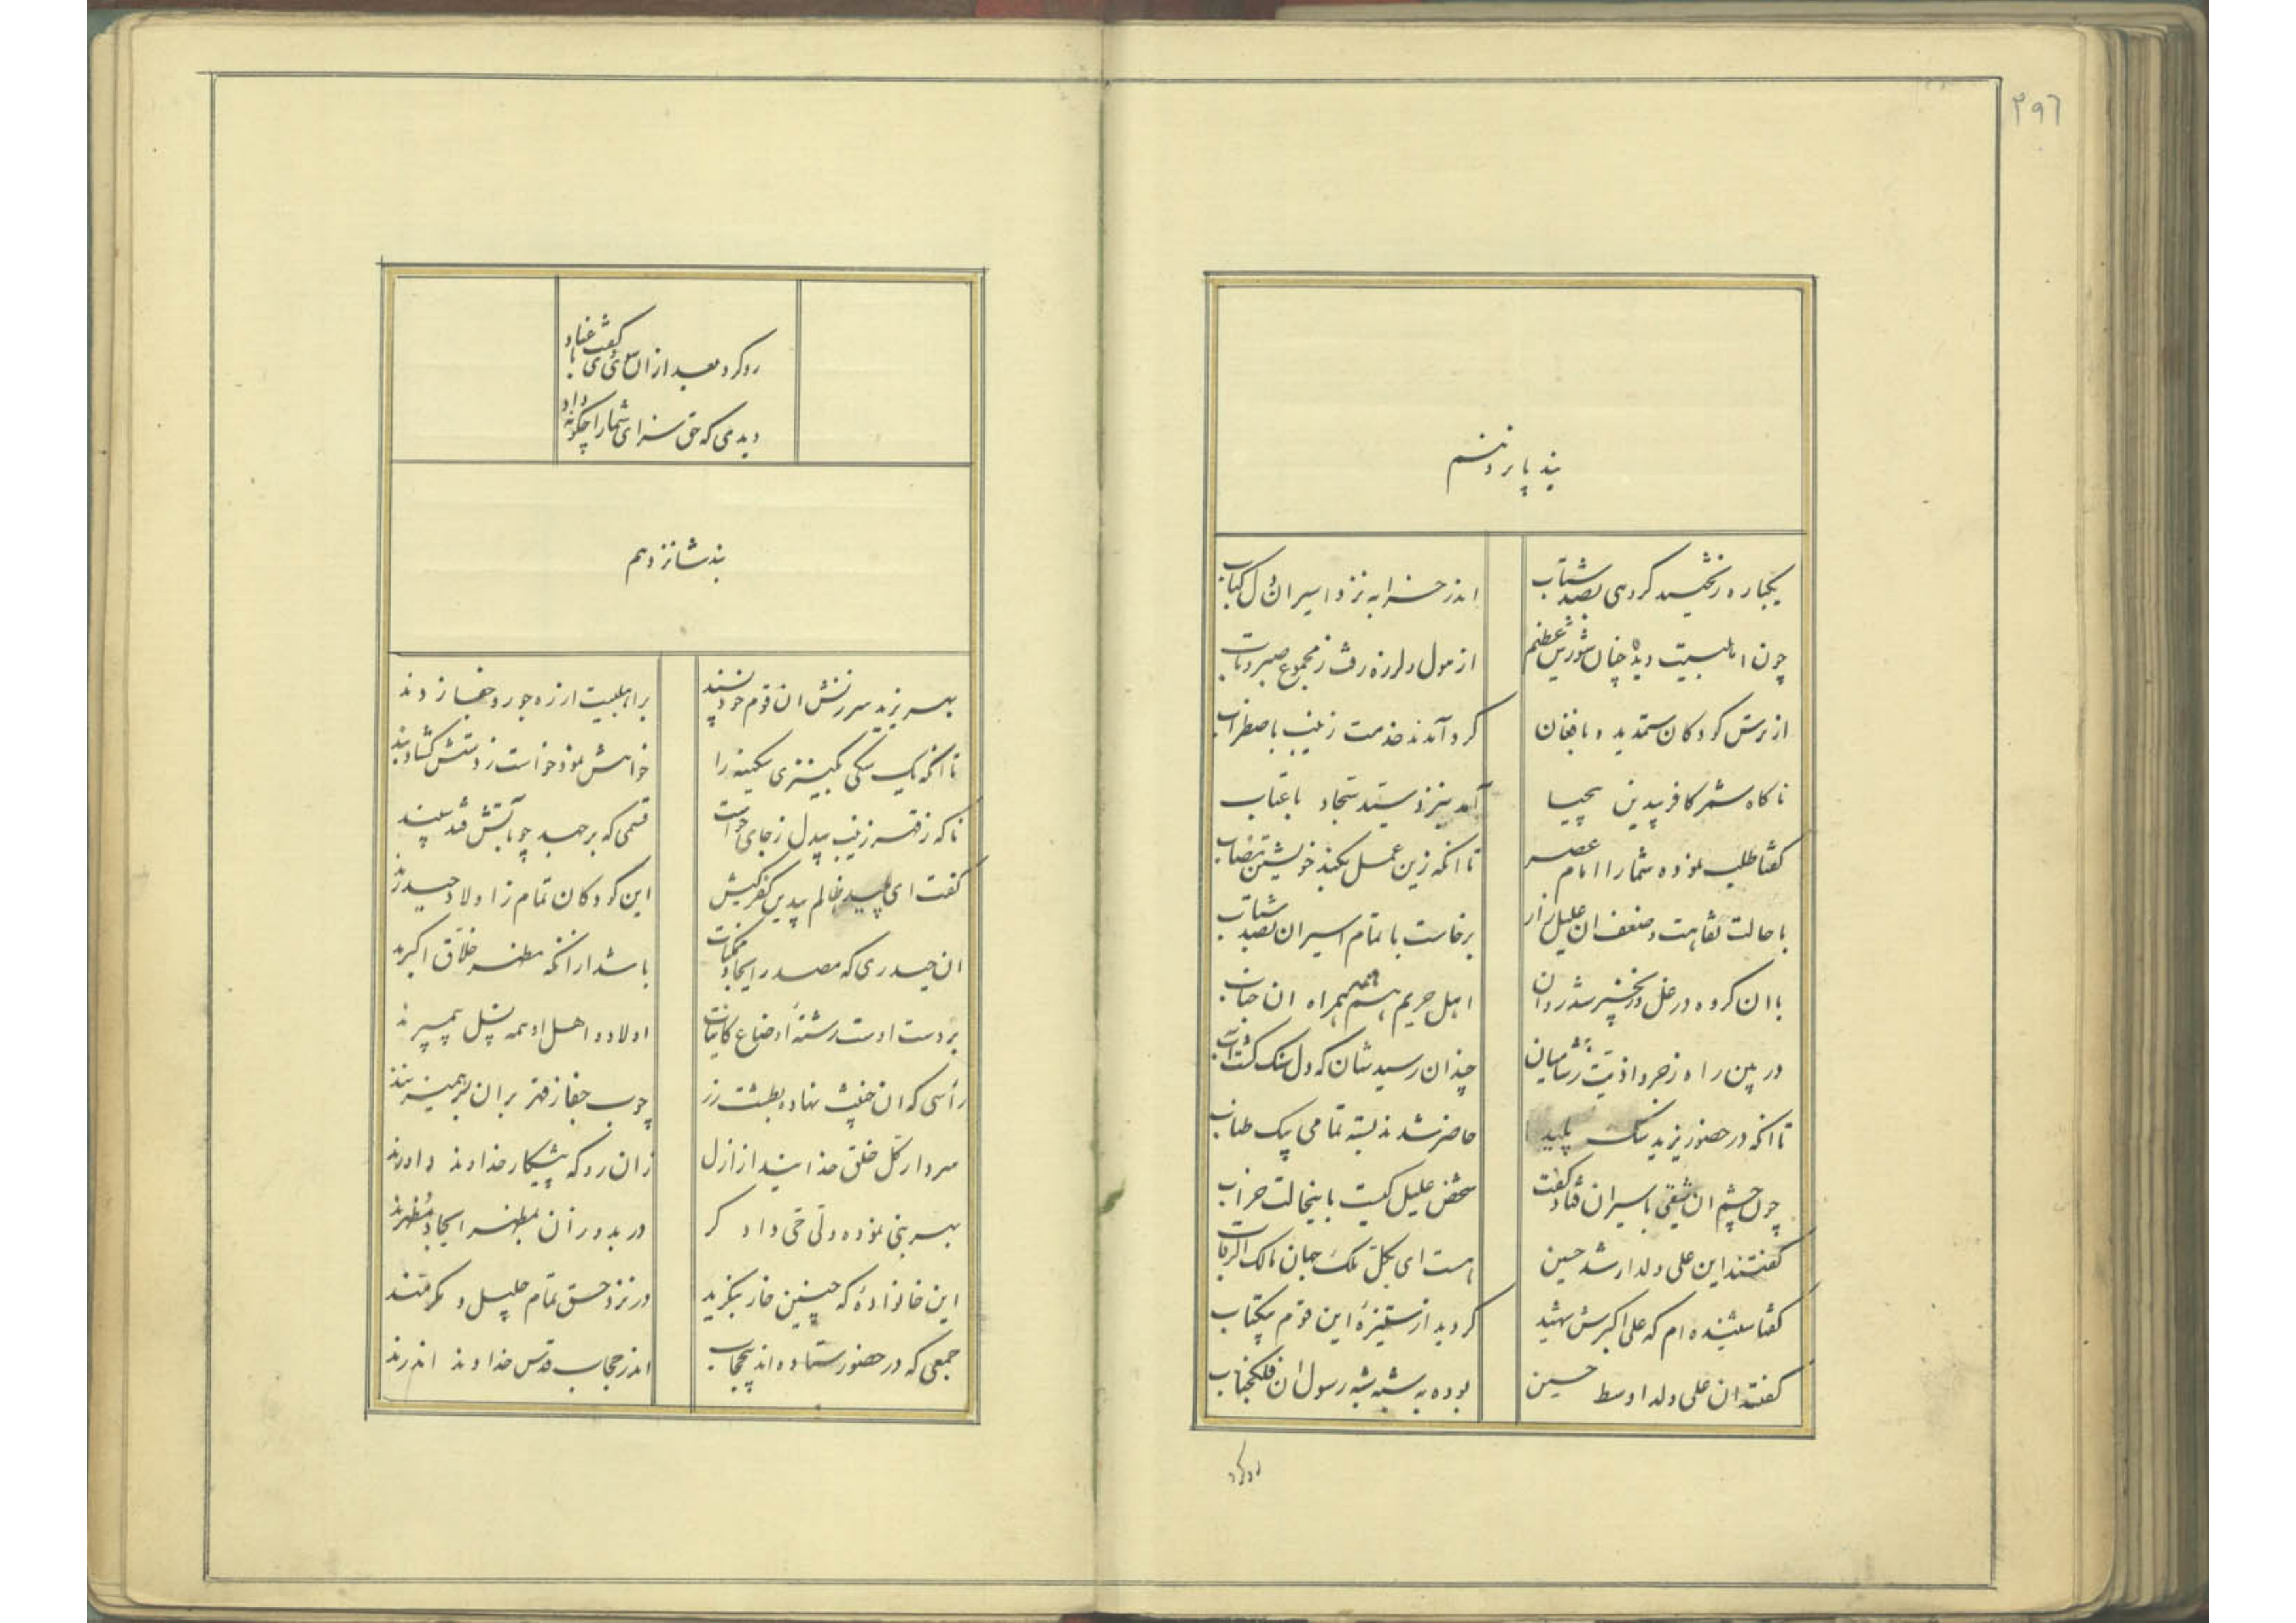 ۲۹۶
بند پانزدهم
یکباره زنخیسد کردی بصد شتاب
اندر خرابه نزد اسیران دل کباب
چون اهلبیت دیده چنان شورش عظیم
از هول و لرزه رفت ز مجموع صبر و تاب
از ترس کودکان ستمدیده با فغان
گرد آمدند خدمت زینب باضطراب
ناگاه شمر کافر بیدین بیحیا
آمد بنزد سید سجاد با عتاب
گفتا طلب نموده شما را امام عصر
تا آنکه زین عمل بکند خویشتن
با حالت نقاهت و ضعف ان علیل زار
برخاست با تمام اسیران بصد شتاب
با ان گروه در غل و زنجیر شد روان
اهل حریم هم همه همراه ان جناب
در بین راه زجر و اذیت ز شامیان
چندان رسید شان که دل سنک گشت آب
تا آنکه در حضور یزید سک پلید
حاضر شدند بسته تمامی بیک طناب
چون چشم ان شقی باسیران فتاد گفت
شخص علیل کیست باینحالت خراب
گفتند این علی ولد ارشد حسین
است ای بکل ملک جهان مالک الرقاب
گفتا شنیده ام که علی اکبرش شهید
گردید از ستیزهٔ این قوم بیکتاب
گفتند ان علی ولد اوسط حسین
بوده به شبه رسول ان فلکجناب
رو کرد
رو کرد بعد از ان سوی وی با عناد گفت
دیدی که حق سزای شما را چگونه داد
بند شانزدهم
بهر یزید سرزنش ان قوم خود پسند
بر اهلبیت از ره جور و جفا زدند
تا آنکه یک سکی بکنیزی سکینه را
خواهش نمود و خواست ز دستش گشاد بند
ناگه ز قهر زینب بیدل ز جای خواست
قسمی که بر جهد چو بآتش فتد سپند
گفت ای پلید ظالم بیدین کفر کیش
این کودکان تمام ز اولاد حیدرند
ان حیدری که مصدر ایجاد ممکنات
باشد از آنکه مظهر خلاق اکبرند
بر دست اوست رشتهٔ اوضاع کاینات
اولاد و اهل او همه نسل پیمبرند
رأسی که ان خبیث نهاده بطشت زر
چوب جفا ز قهر بر ان بر همیزنند
سردار کل خلق خدایند از ازل
زان رو که پیشکار خداوند داورند
بهر بنی نموده ولی حی داد گر
در بدو ز آن بمظهر ایجاد مظهرند
این خانوادهٔ که چنین خار بنگرید
در نزد حق تمام جلیل و مکرمند
جمعی که در حضور ستاده اند بیحجاب
اندر حجاب قدس خداوند اندرند